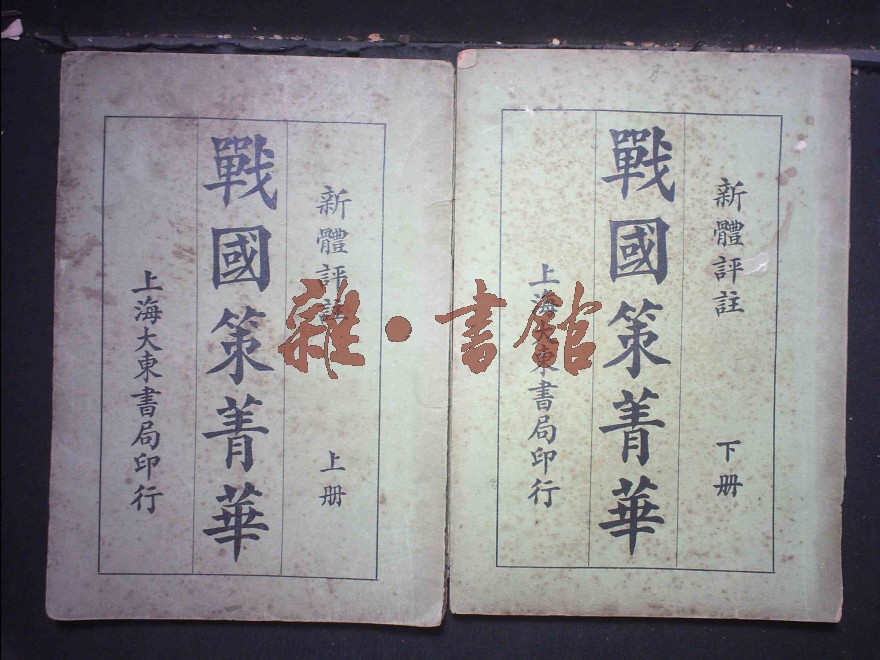 新體評註 上册
戰國策菁華
上海大東書局印行
新體評註 下册
戰國策菁華
上海大東書局印行
雜·書館